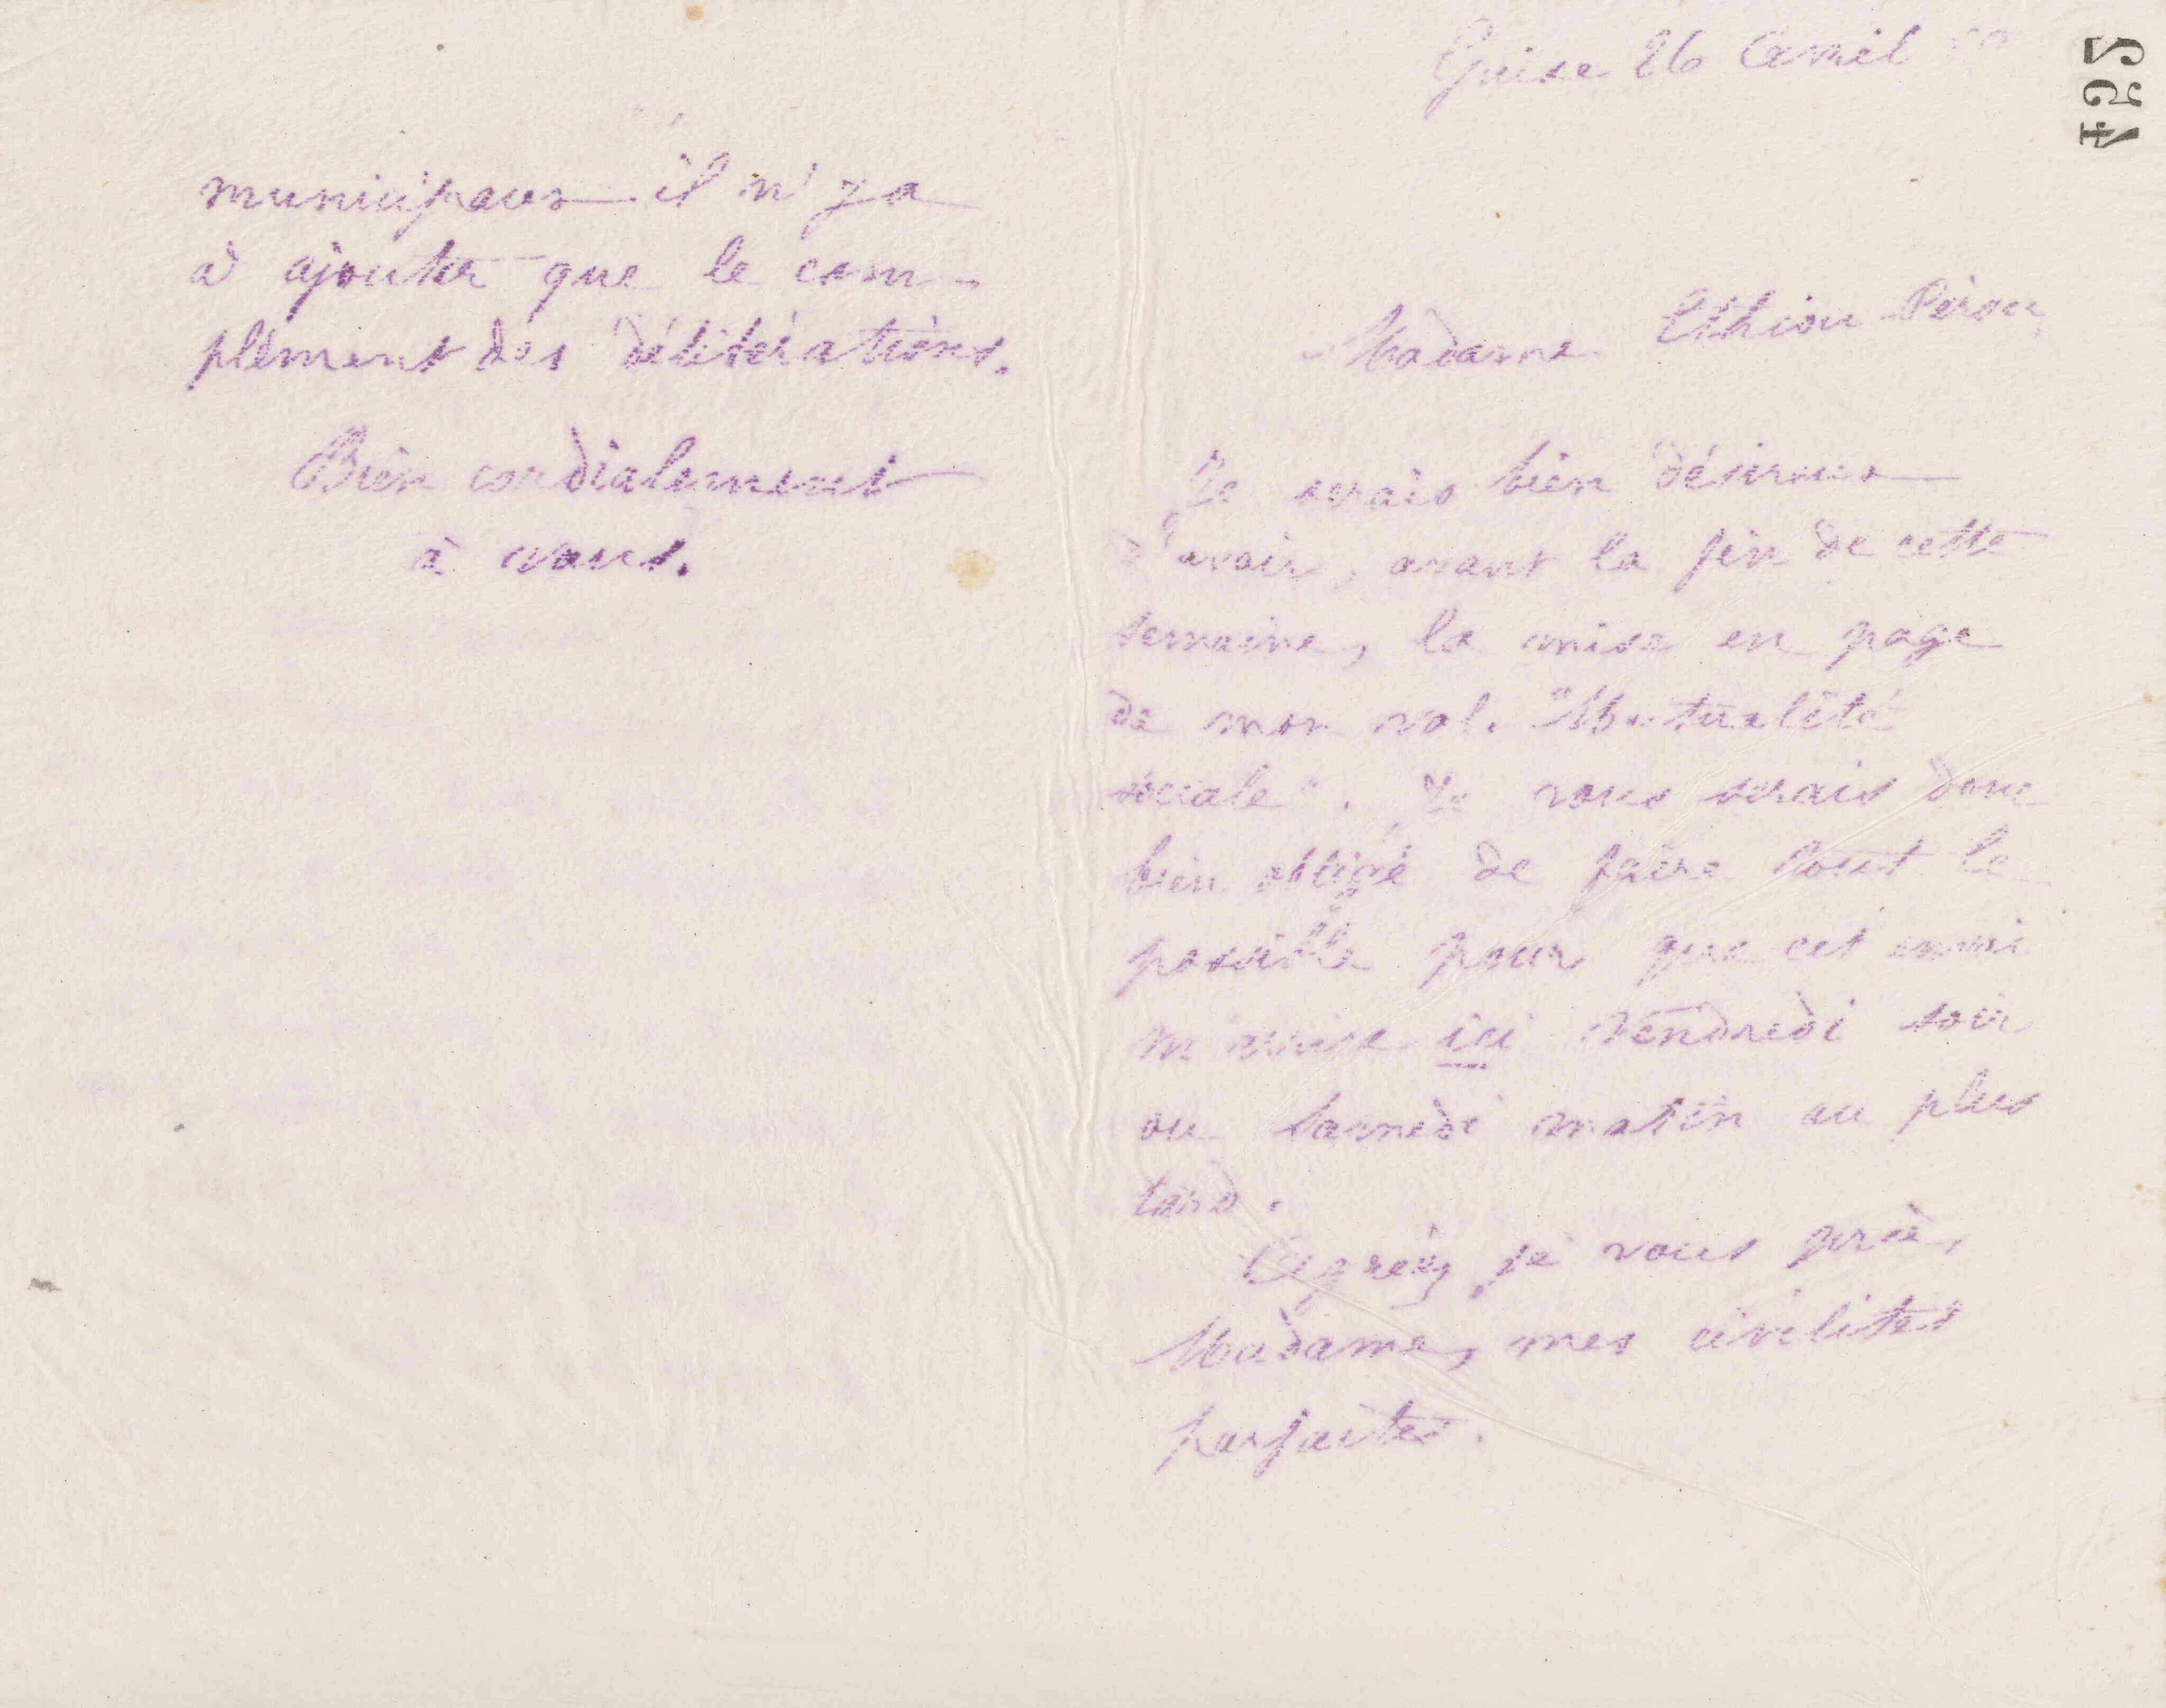 municipaux il n'y a
à ajouter que le com-
plément des délibérations.
Bien cordialement
à vous.
524
Guise 26 Avril
Madame Ethiou Pérou
Je serais bien désireux
d'avoir, avant la fin de cette
semaine, la mise en page
de mon vol. "Mutualité
sociale". Je vous serais donc
bien obligé de faire tout le
possible pour que cet envoi
m'arrive ici vendredi soir
ou samedi matin au plus
tard.
Agréez, je vous prie,
Madame, mes civilités
parfaites.